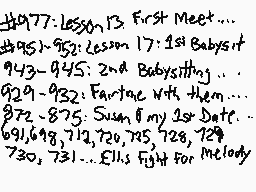 #977: Lesson 13. First Meet....
#951-952: Lesson 17: 1st Babysit
943-945: 2nd Babysitting...
929-932: Fairtime With them....
872-875: Susan & my 1st Date...
691, 698, 712, 720, 725, 728, 729
730, 731... Ellis Fight For Melody